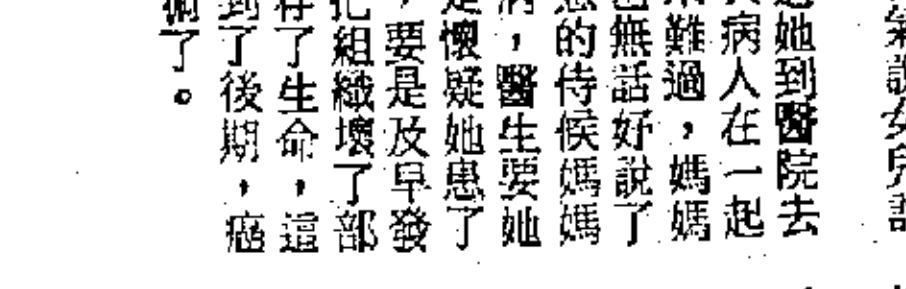 說女兒
她到醫院去
病人在一起
難過，媽媽
無話好說了
的侍候媽媽
，醫生要她
懷疑她患了
要是及早發
組織壞了部
了生命，這
到了後期，癌
了。